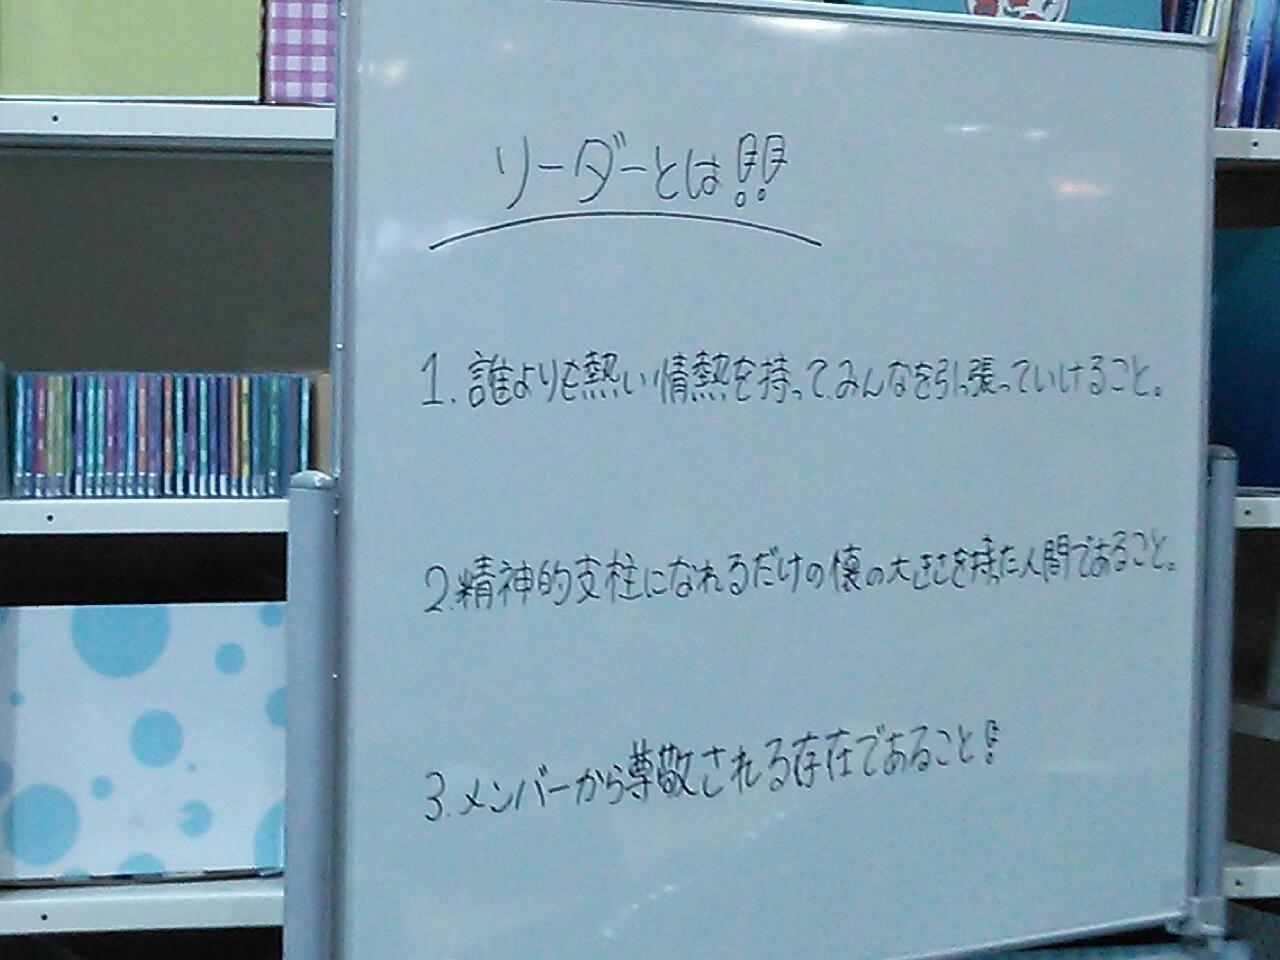 リーダーとは!!
1.誰よりも熱い情熱を持ってみんなを引っ張っていけること。
2.精神的支柱になれるだけの懐の大きさを持った人間であること。
3.メンバーから尊敬される存在であること!